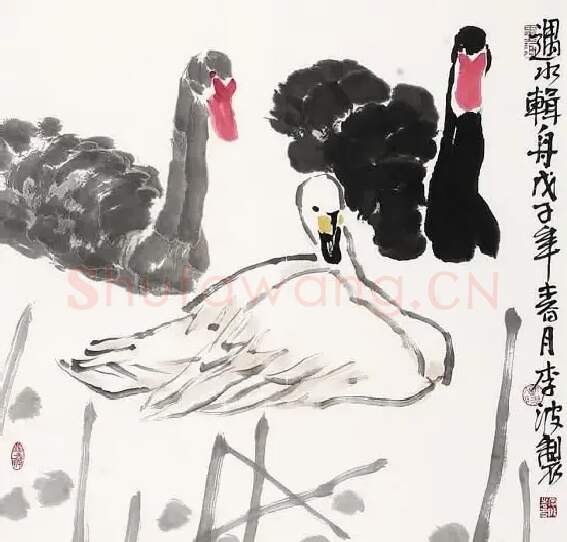 遇水輯舟戊子年春月李波製
Shufawang.CN